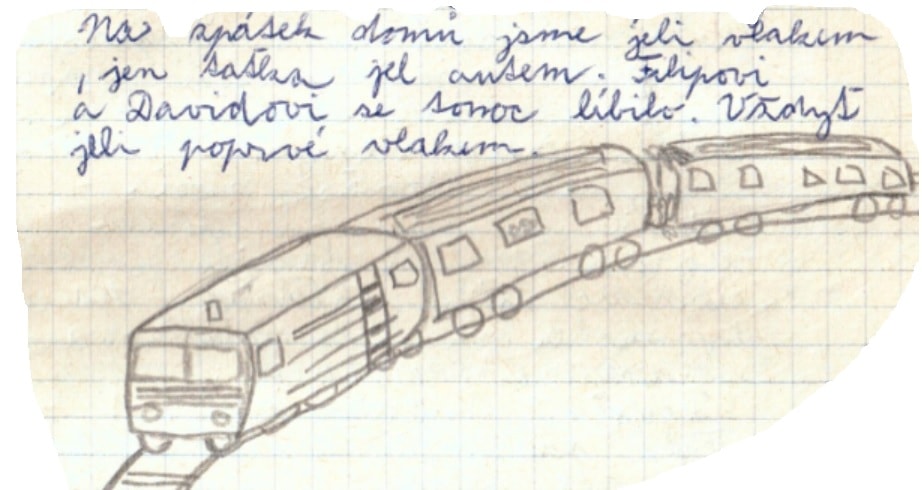 Na zpátek domů jsme jeli vlakem
, jen taťka jel autem. Filipovi
a Davidovi se tomoc líbilo. Vždyť
jeli poprvé vlakem.